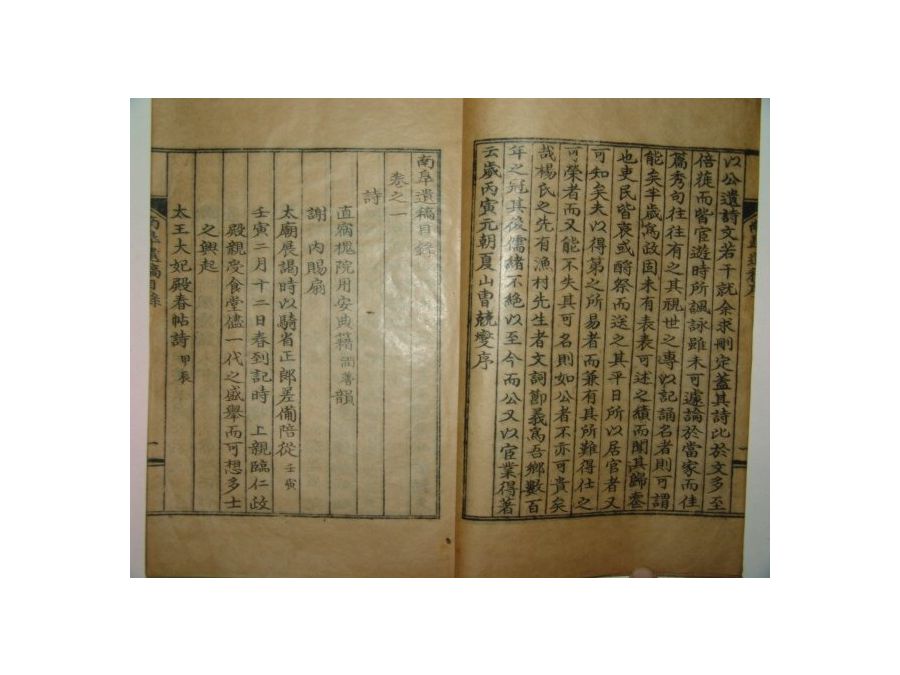 以公遺詩文若干就余求刪定蓋其詩比於文多至
倍蓰而皆宦遊時所諷詠雖未可遽論於當家而佳
篇秀句往往有之其視世之專以記誦名者則可謂
能矣半歲爲政固未有表表可述之績而聞其歸雲
也吏民皆哀或酹祭而送之其平日所以居官者又
可知矣夫以得第之所易者而兼有其所難得仕之
可榮者而又能不失其可名則如公者不亦可貴矣
哉楊氏之先有漁村先生者文詞節義爲吾鄕數百
年之冠其後儒緖不絶以至今而公又以宦業得著
云歲丙寅元朝夏山曺兢燮序
南阜遺稿目錄
卷之一
詩
直宿槐院用安典籍潤蓍韻
謝 內賜扇
太廟展謁時以騎省正郎差備陪從壬寅
壬寅二月十二日春到記時 上親臨仁政
殿親受食堂儘一代之盛擧而可想多士
之興起
太王大妃殿春帖詩甲辰
南阜遺稿目錄 一